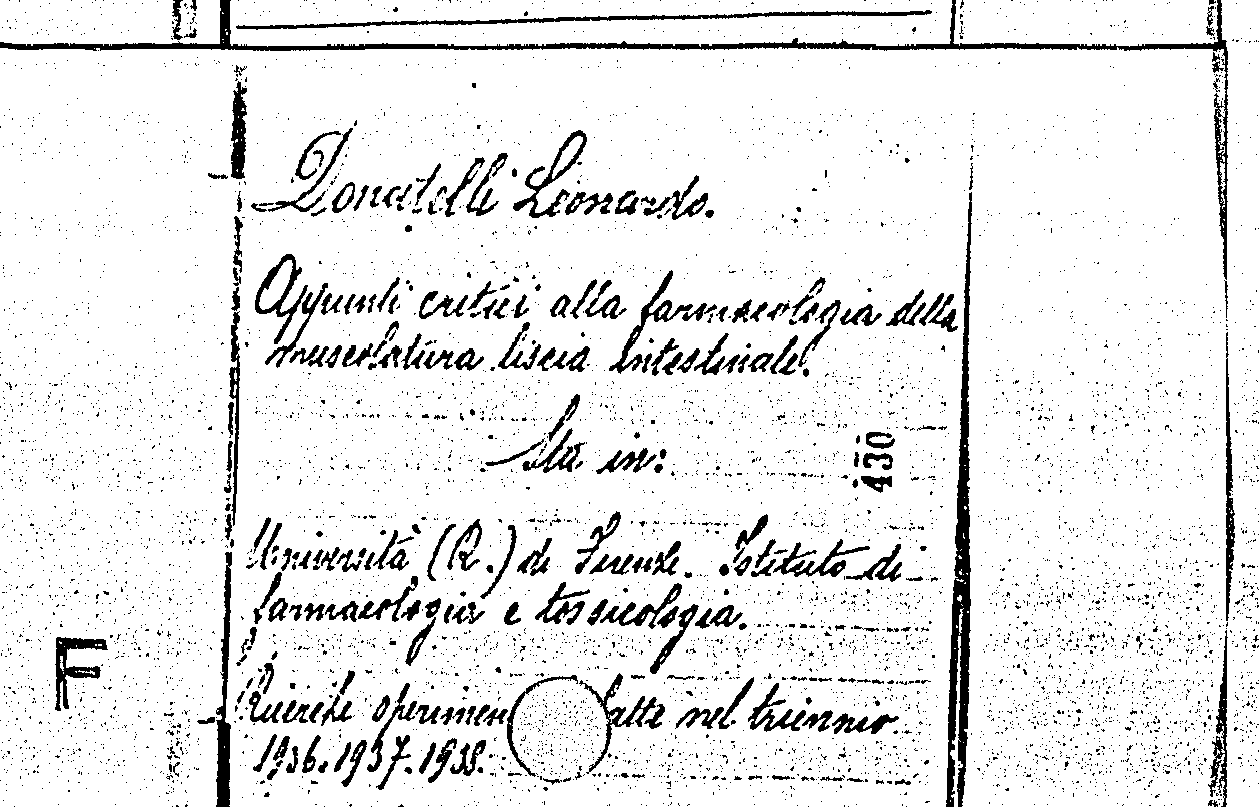 Donatelli Leonardo.
Appunti critici alla farmacologia della
muscolatura liscia intestinale.
Sta in:
430
Università (R.) di Firenze. Istituto di
farmacologia e tossicologia.
F
Ricerche sperimen fatte nel triennio
1936.1937.1938.